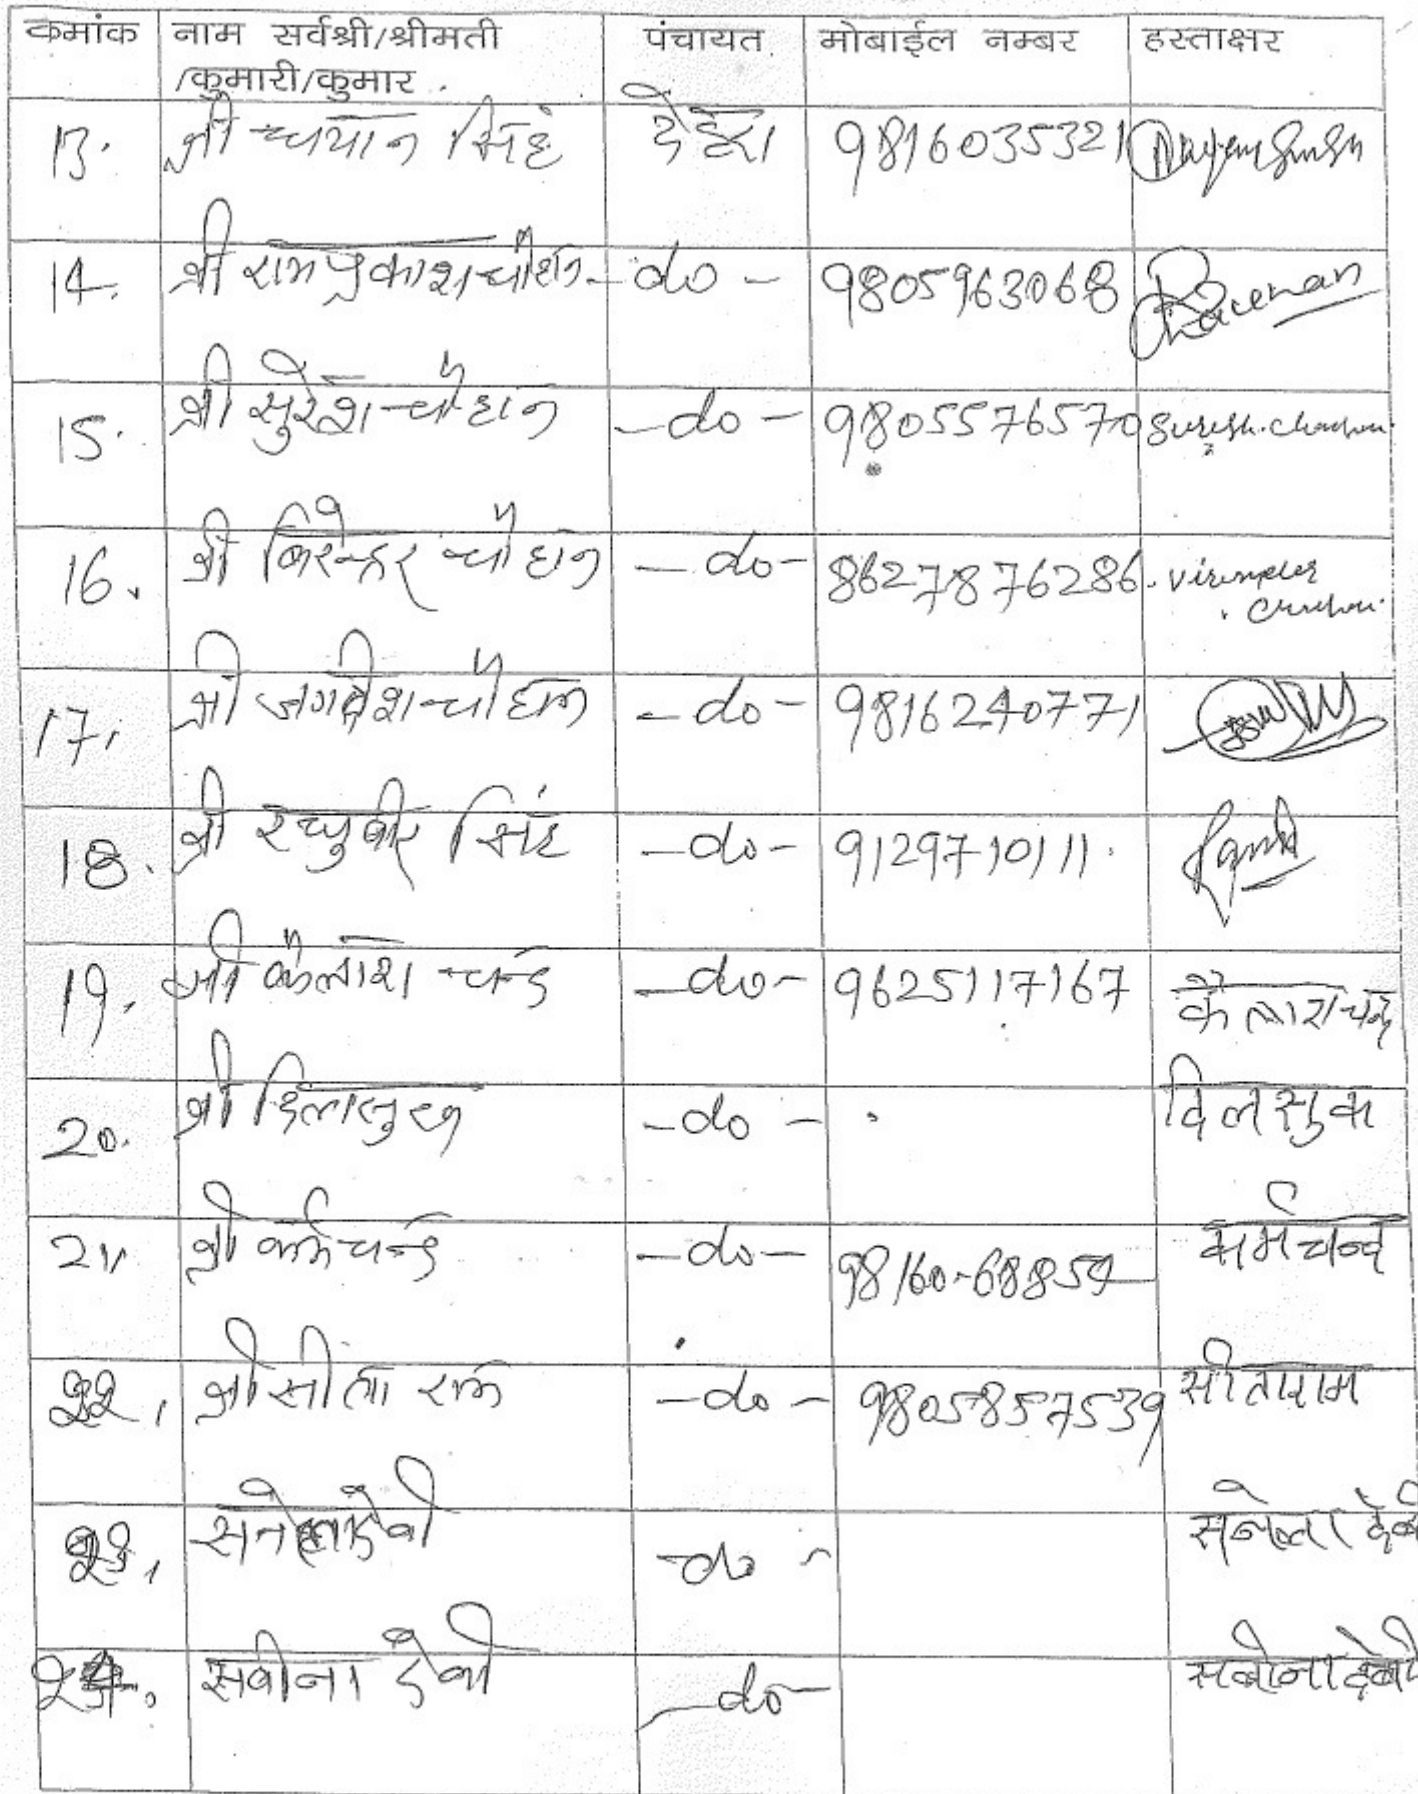 क्रमांक नाम सर्वश्री/श्रीमती पंचायत मोबाईल नम्बर हस्ताक्षर
/कुमारी/कुमार
13. श्री ध्यान सिंह देहरा 9816035321
14. श्री राम प्रकाश चौहान -do- 9805963068
15. श्री सुरेश चौहान -do- 9805576570 Suresh Chauhan
16. श्री बिरेन्दर चौहान -do- 8627876286 Virender
Chauhan
17. श्री जगदीश चौहान -do- 9816240771
18. श्री रघुबीर सिंह -do- 9129710111
19. श्री कैलाश चन्द -do- 9625117167 कैलाश चन्द
20. श्री दिलासुख -do- दिलसुक
21. श्री कर्म चन्द -do- 98160-68859 कर्मचन्द
22. श्री सीता राम -do- 9805857539 सीताराम
23. देवी -do- देवी
24. सबीना देवी -do- सबीना देवी